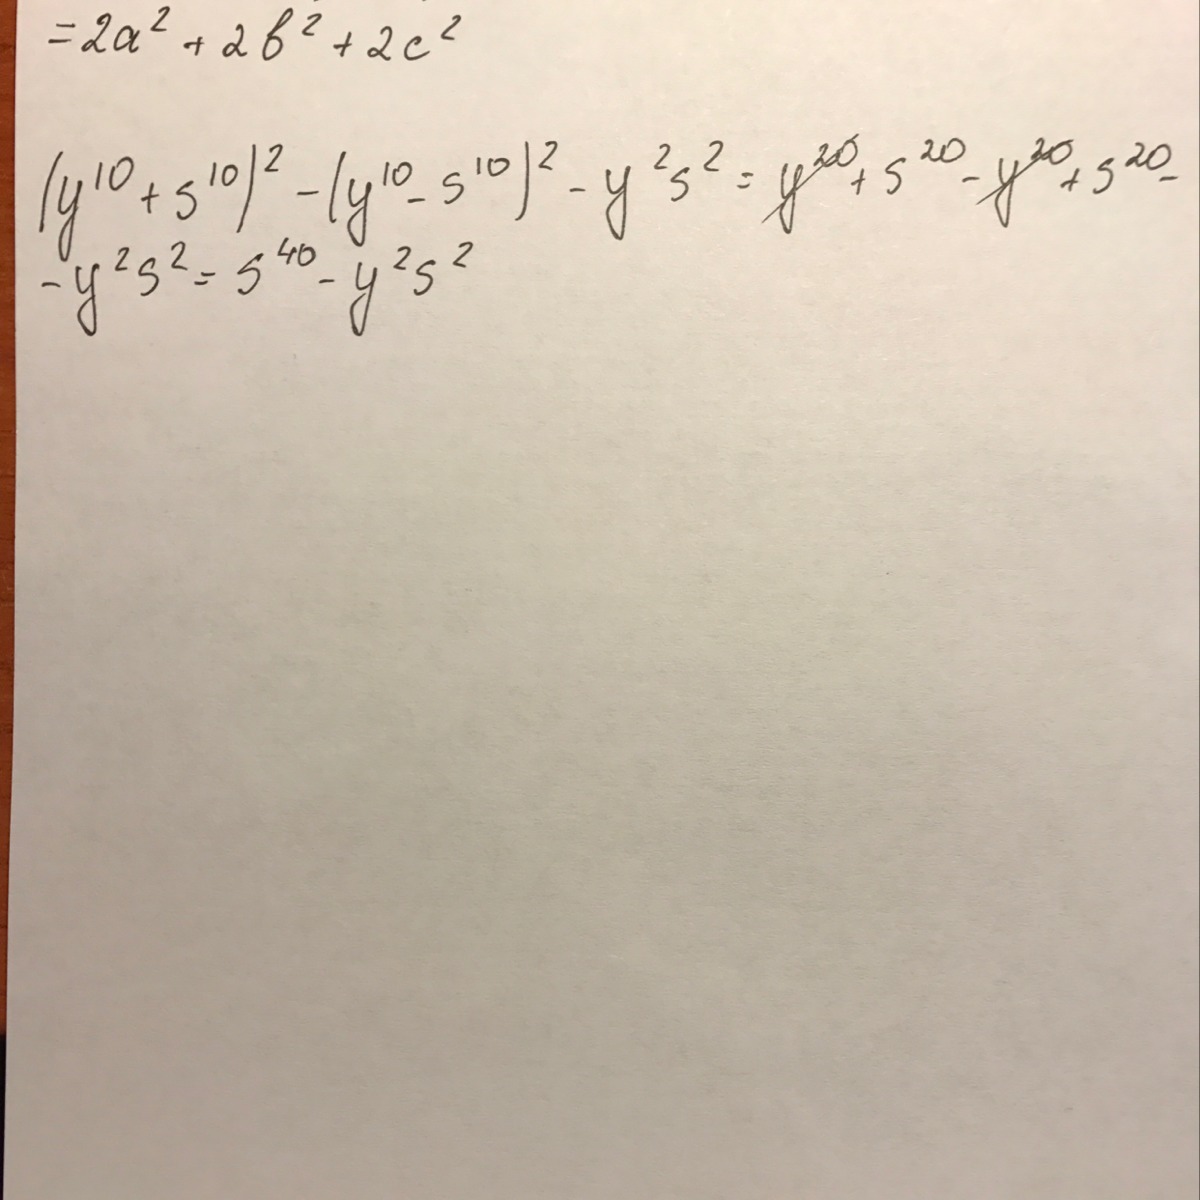 = 2a² + 2b² + 2c²
(y¹⁰ + s¹⁰)² - (y¹⁰ - s¹⁰)² - y²s² = y²⁰ + s²⁰ - y²⁰ + s²⁰ -
- y²s² = s⁴⁰ - y²s²